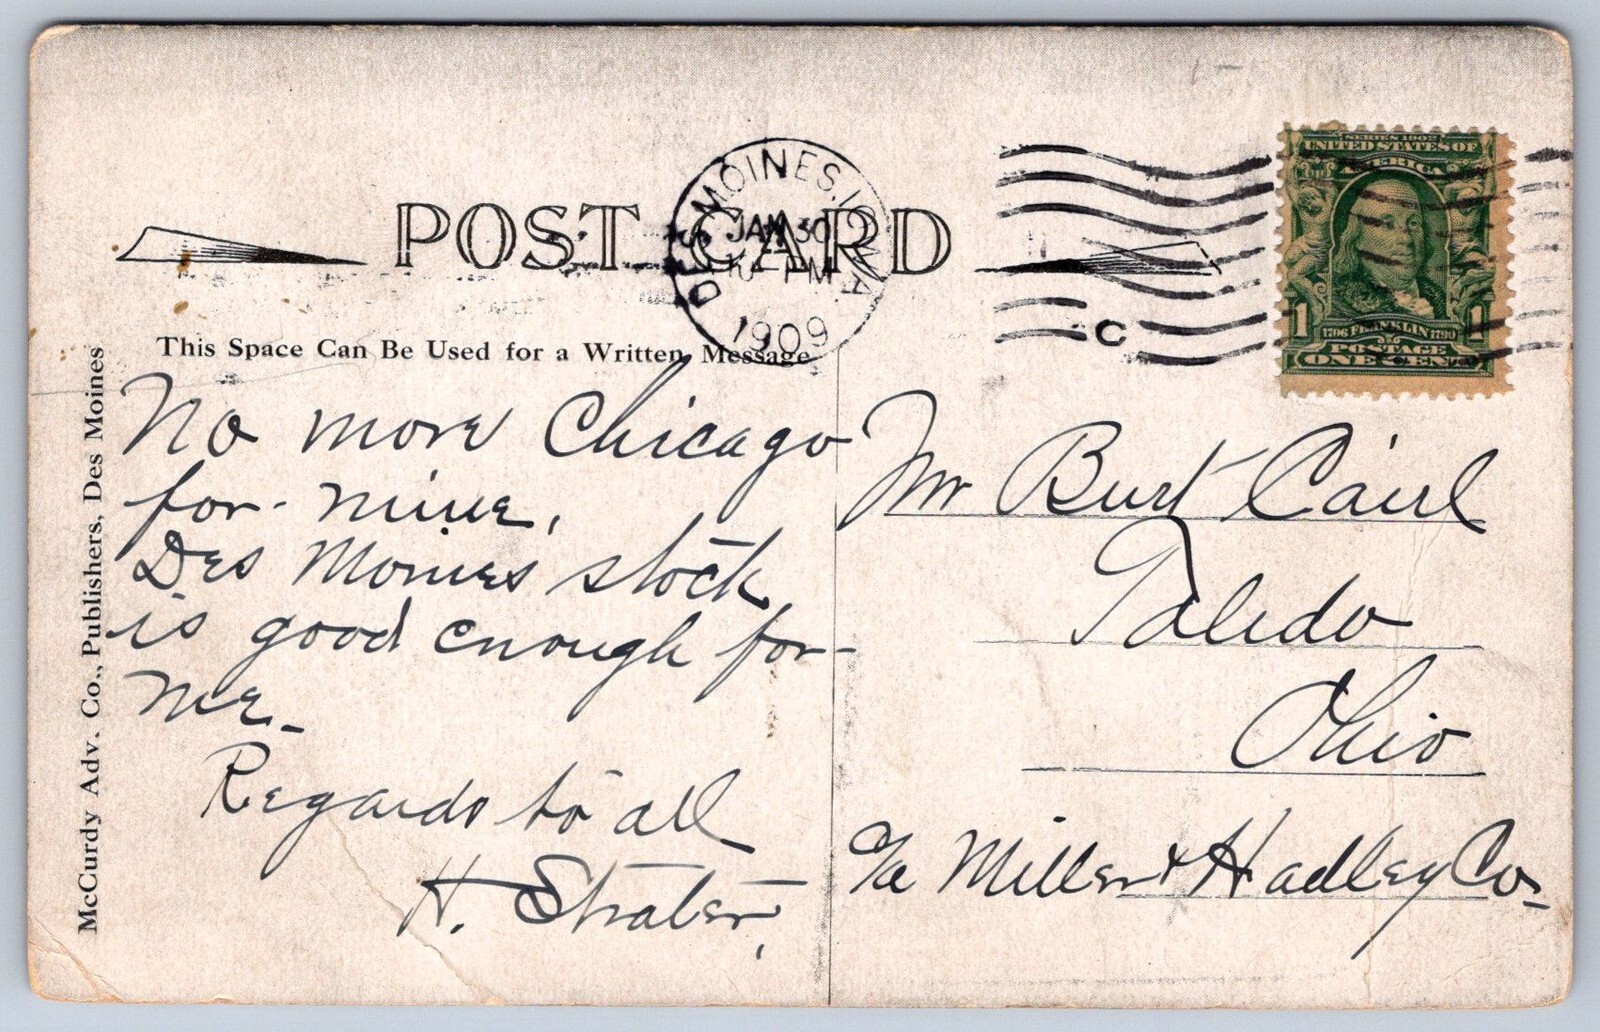 POST CARD
DES MOINES, IOWA
JAN 30
PM
1909
C
SERIES 1902
UNITED STATES OF
AMERICA
1 1
1706 FRANKLIN 1790
POSTAGE
ONE CENT
This Space Can Be Used for a Written Message
McCurdy Adv. Co., Publishers, Des Moines
No more Chicago
for mine,
Des Moines stock
is good enough for
me.
Regards to all
H. Strater,
Mr Burt Cairl
Toledo
Ohio
c/o Miller & Hadley Co.